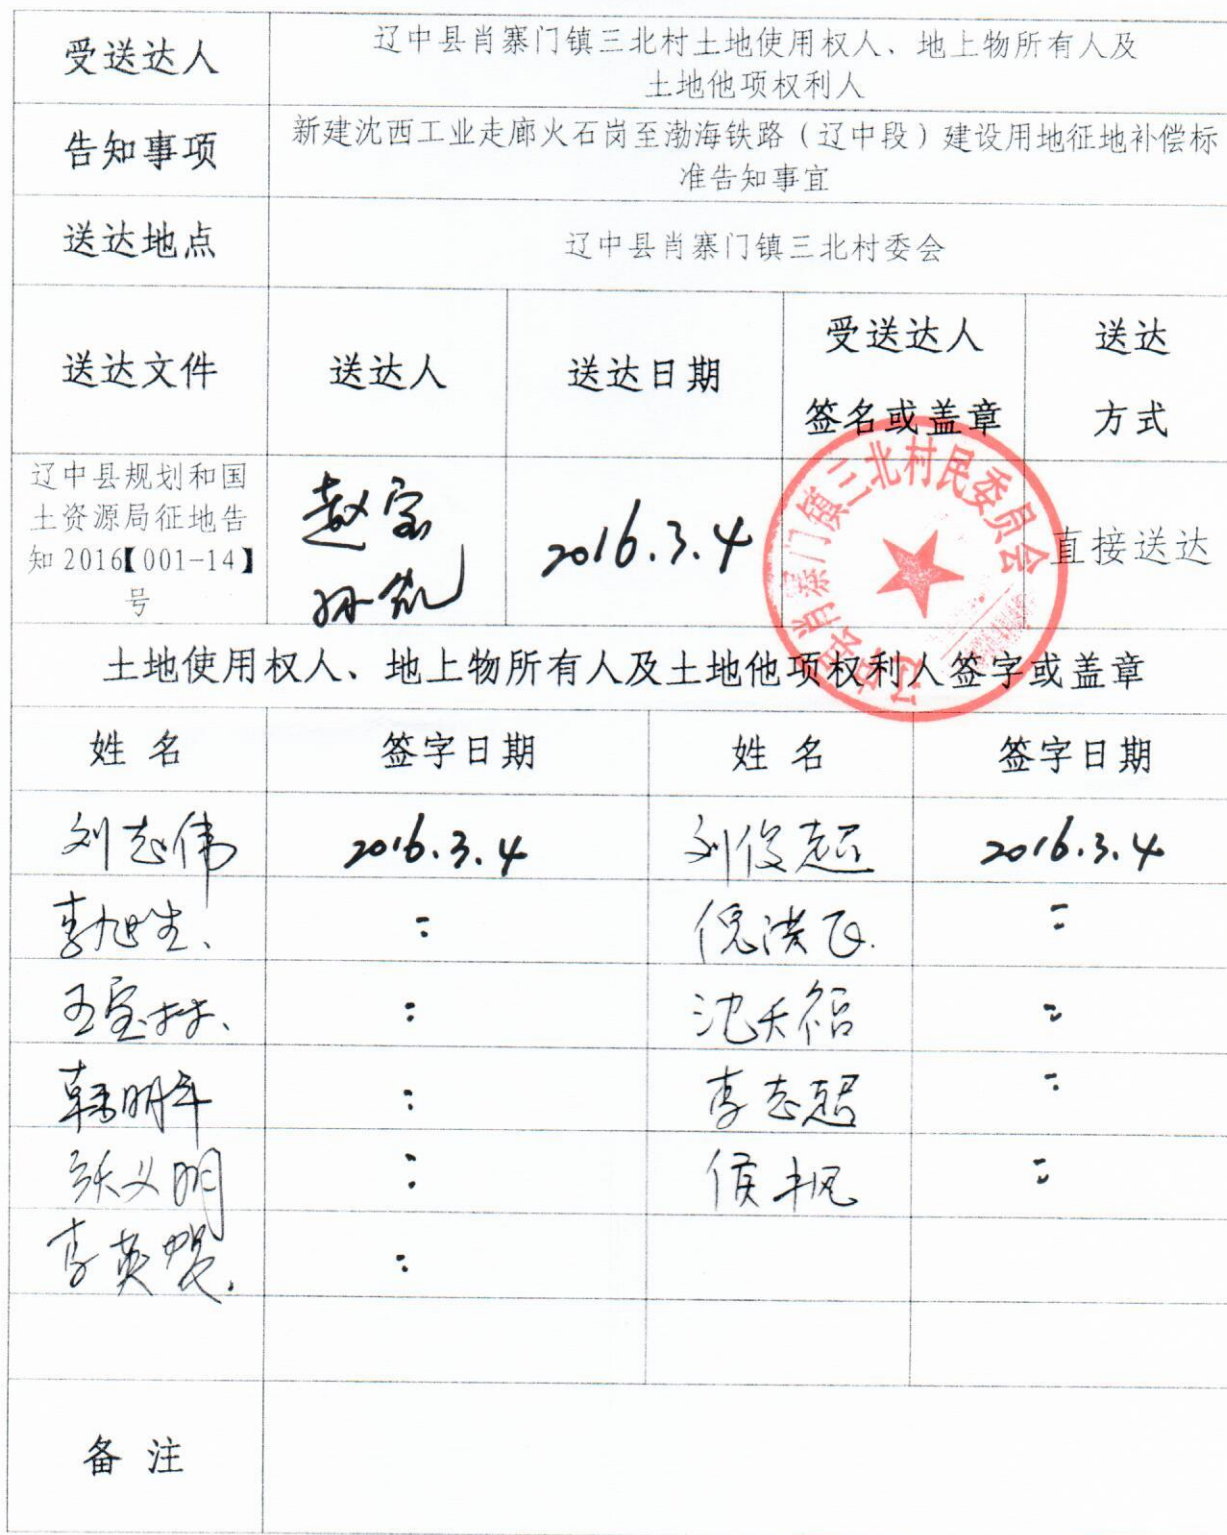 受送达人
辽中县肖寨门镇三北村土地使用权人、地上物所有人及
土地他项权利人
告知事项
新建沈西工业走廊火石岗至渤海铁路（辽中段）建设用地征地补偿标
准告知事宜
送达地点
辽中县肖寨门镇三北村委会
送达文件
送达人
送达日期
受送达人
签名或盖章
送达
方式
辽中县规划和国
土资源局征地告
知2016【001-14】
号
赵宝
孙凯
2016.3.4
辽中县肖寨门镇三北村民委员会
直接送达
土地使用权人、地上物所有人及土地他项权利人签字或盖章
姓 名
签字日期
姓 名
签字日期
刘志伟
2016.3.4
刘俊超
2016.3.4
李旭生、
倪洪飞.
王宝林、
沈天福
韩明年
李志君
张义明
侯丰枫
李英俊.
备 注